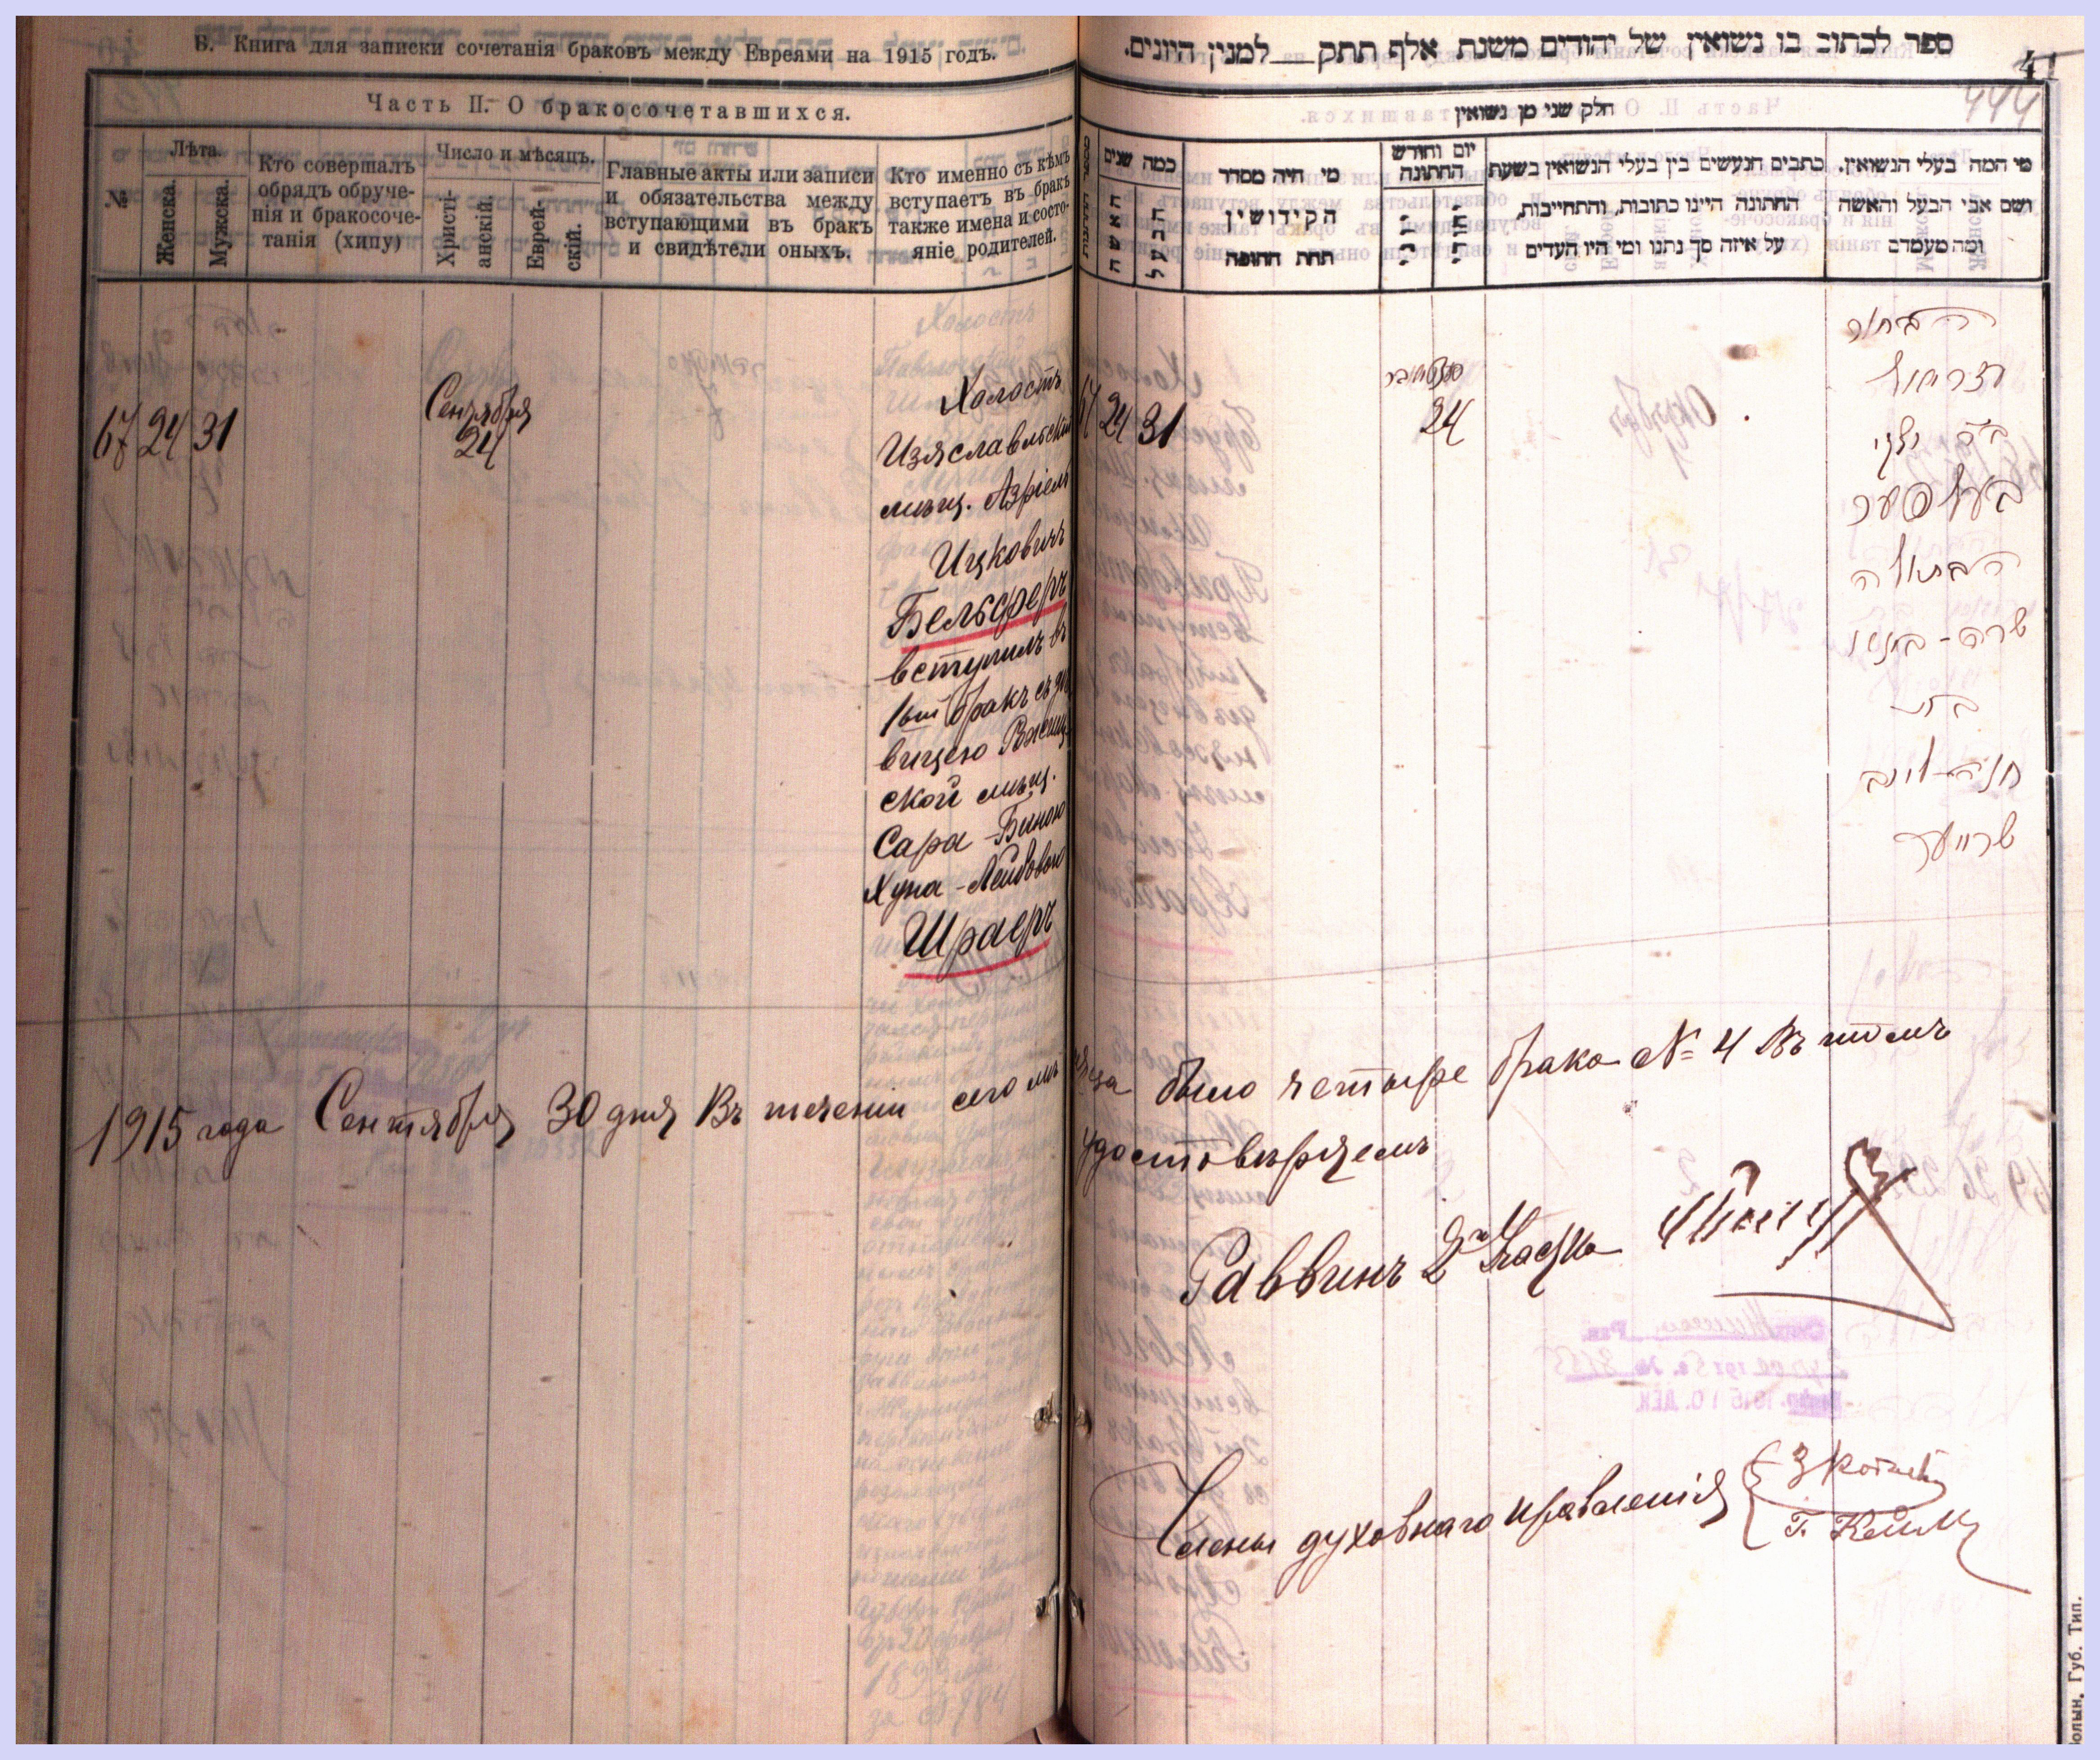 Б. Книга для записки сочетанія браковъ между Евреями на 1915 годъ.
Часть II. О бракосочетавшихся.
№
Лѣта.
Женска.
Мужска.
Кто совершалъ
обрядъ обруче-
нія и бракосоче-
танія (хипу)
Число и мѣсяцъ.
Христі-
анскій.
Еврей-
скій.
Главные акты или записи
и обязательства между
вступающими въ бракъ
и свидѣтели оныхъ.
Кто именно съ кѣмъ
вступаетъ въ бракъ
также имена и состо-
яніе родителей.
67 24 31
Сентября
24
Холостъ
Изяславльскій
мѣщ. Азріель
Ицковичъ
Бельферъ
вступилъ въ
1ый бракъ съ дѣ-
вицею
ской мѣщ.
Сара-Биною
Хуна-Лейбовою
Шраеръ
1915 года Сентября 30 дня Въ теченіи сего мѣ
ספר לכתוב בו נשואין של יהודים משנת אלף תתק__למנין היונים.
41
444
חלק שני מן נשואין
כמה שנים
האשה
הבעל
מי היה מסדר
הקידושין
תחת החופה
יום וחודש
החתונה
כתבים הנעשים בין בעלי הנשואין בשעת
החתונה היינו כתובות, והתחייבות,
על איזה סך נתנו ומי היו העדים
מי המה בעלי הנשואין.
ושם אבי הבעל והאשה
ומה מעמדם
67 24 31
24
הבחור
עזריאל
ב"ר
בעלפער
הבתולה
שרה-בינא
בת
חונה-לייב
שרייער
сяца было четыре брака № 4 Въ томъ
удостовѣряемъ
Раввинъ 2го Участка
Члены духовнаго правленія
Волын. Губ. Тип.